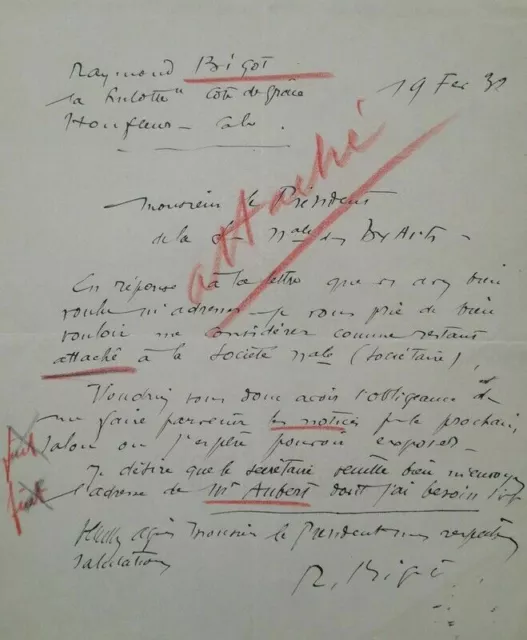 Raymond Bigot
"la Hulotte" Côte de Grâce
Honfleur - Calv.
19 Fev 32
attaché
Monsieur le Président
de la Sté Nale des Bx Arts -
En réponse à la lettre que vs avez bien
voulu m'adresser je vous prie de bien
vouloir me considérer comme restant
attaché à la Société Nale (Sociétaire).
Voudriez vous donc avoir l'obligeance de
me faire parvenir les notices pr le prochain
salon ou j'espère pouvoir exposer -
fait
Je désire que le secrétaire veuille bien m'envoyer
fait
l'adresse de Mr Aubert dont j'ai besoin
Veuillez agréer Monsieur le Président mes respectueuses
salutations
R. Bigot